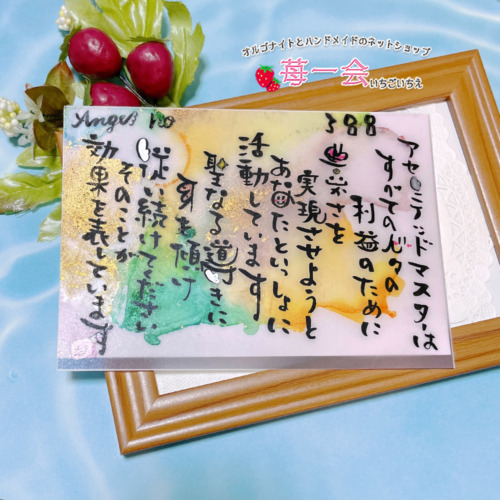 オルゴナイトとハンドメイドのネットショップ
苺一会
いちごいちえ
Angel No
388
アセンデッドマスターは
すべての人々の
利益のために
豊かさを
実現させようと
あなたといっしょに
活動しています
聖なる導きに
耳を傾け
従い続けてください
そのことが
効果を表しています